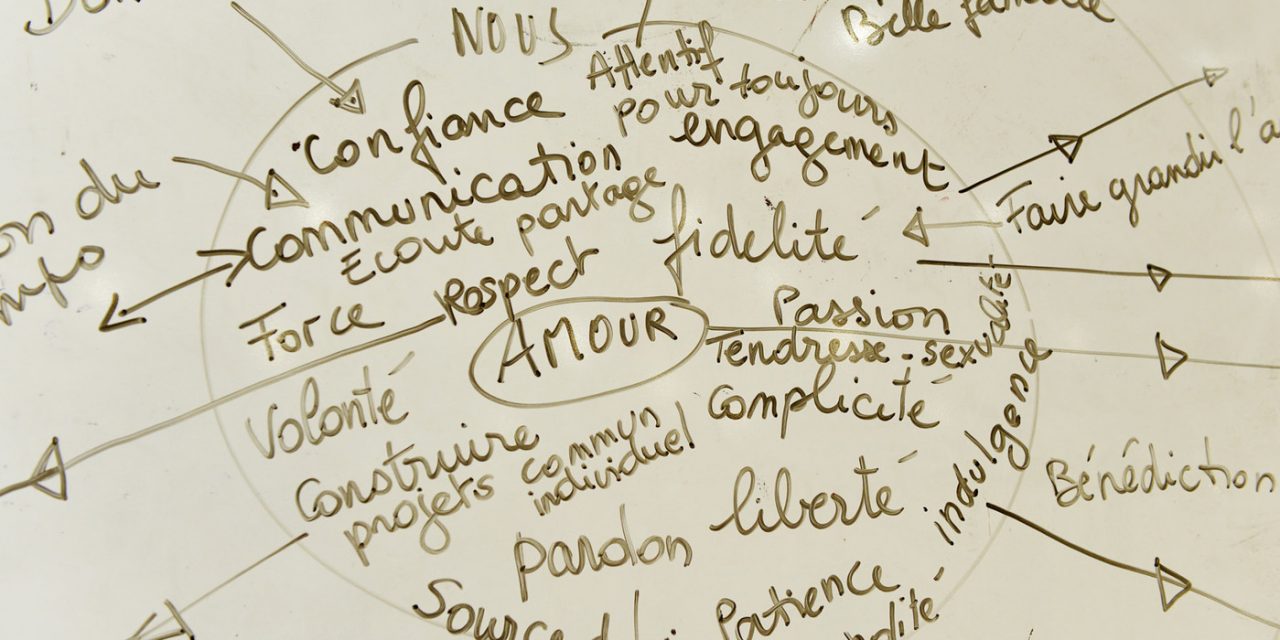 NOUS
Belle
Attentif
pour toujours
engagement
Confiance
Communication
Ecoute partage
on du
Faire grandir l'a
fidelité
Respect
Force
AMOUR
Passion
Tendresse - sexualité
Complicité
indulgence
Volonté
Construire
projets commun
individuel
liberté
Bénédiction
pardon
Patience
Source